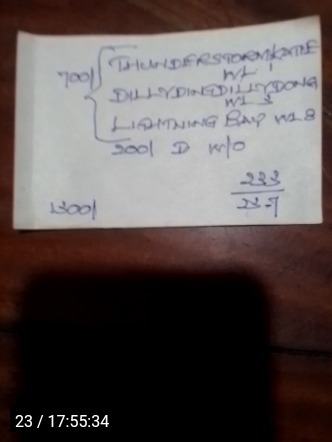 700/ { THUNDERSTORMKATIE
WL 1
DILLYDINGDILLYDONG
WL 3
LIGHTNING BAY WL 8
200/ D W/O
1300/
233
237
23 / 17:55:34